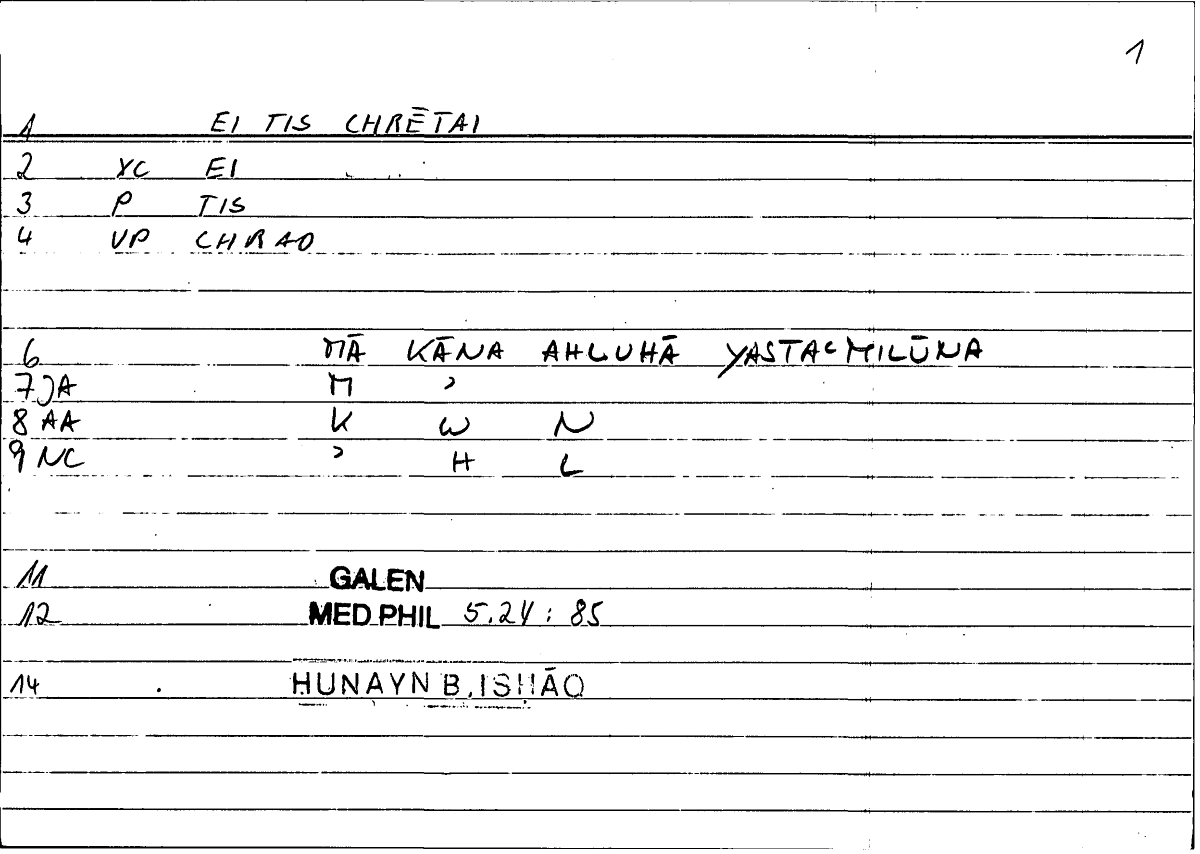 1
1 EI TIS CHRĒTAI
2 YC EI
3 P TIS
4 VP CHRAO
6 MĀ KĀNA AHLUHĀ YASTAʿMILŪNA
7 JA M ʾ
8 AA K W N
9 NC ʾ H L
11 GALEN
12 MED PHIL 5.24 : 85
14 HUNAYN B. ISHĀQ